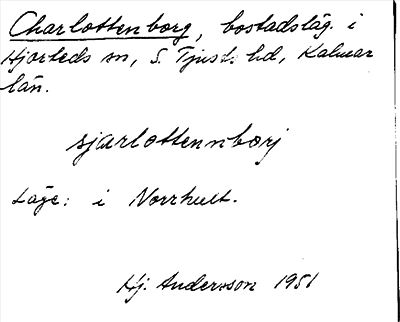 Charlottenborg, bostadsläg. i
Hjorteds sn, S. Tjust hd, Kalmar
län.
sjarlottennborj
Läge: i Norrhult.
Hj. Andersson 1951